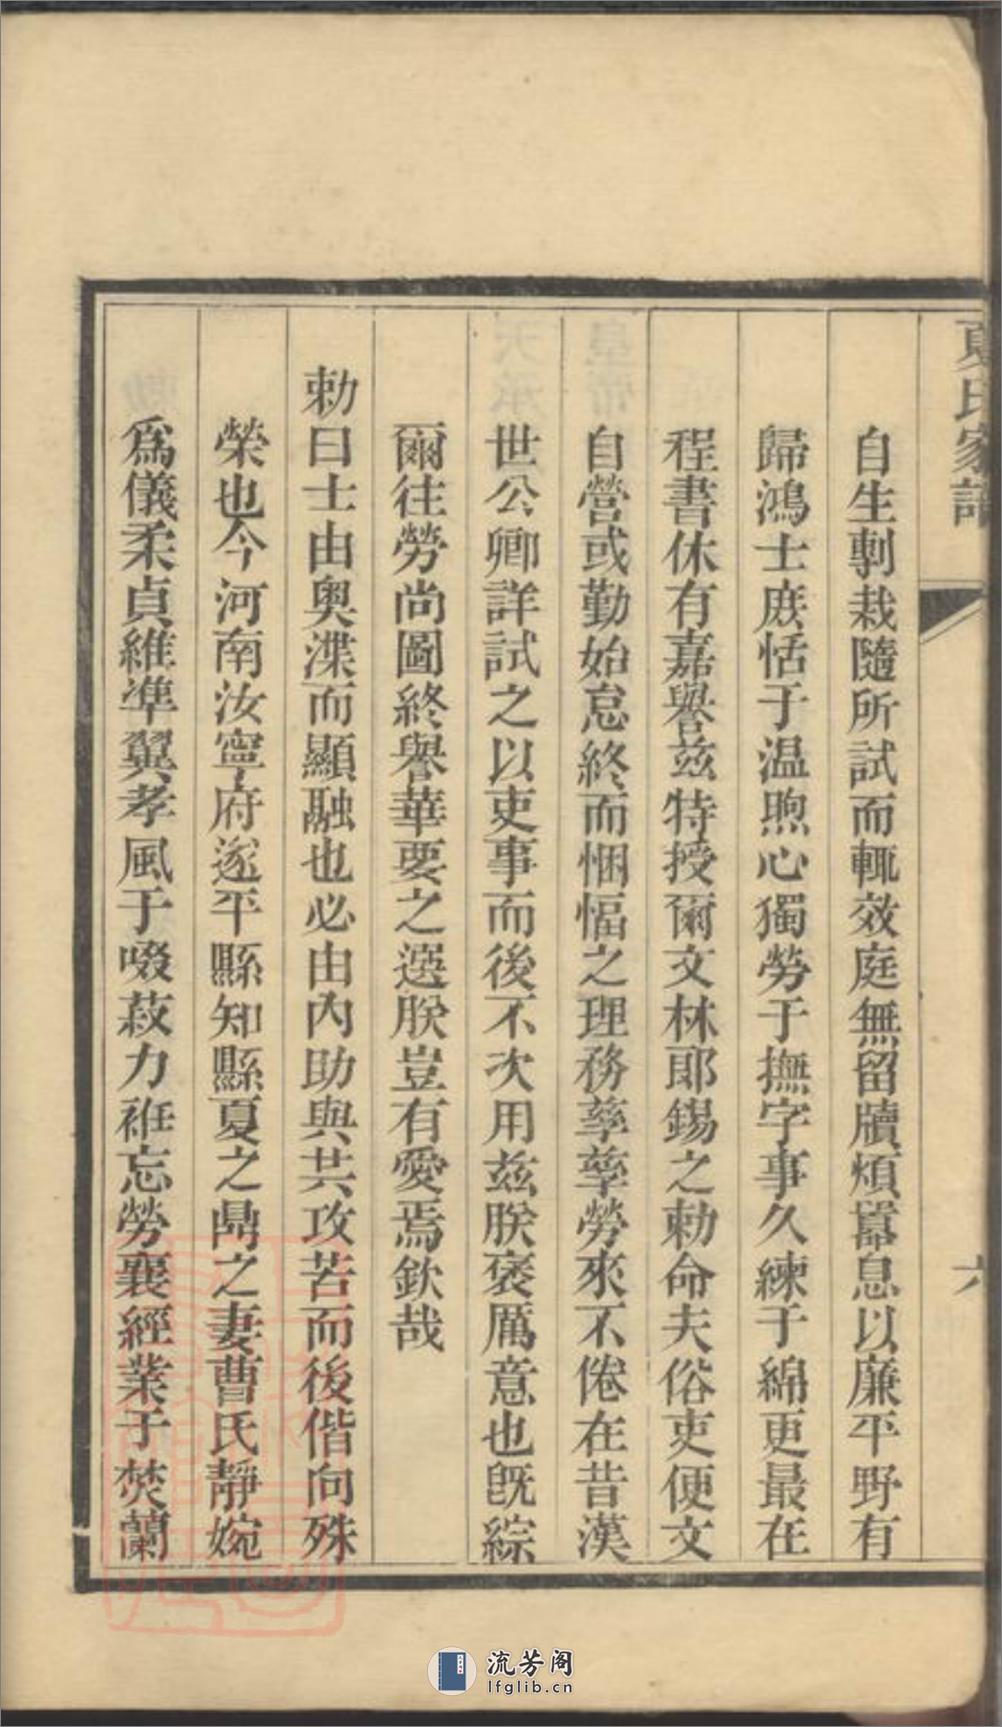 夏氏家譜
六
自生剸裁隨所試而輒效庭無留牘煩囂息以廉平野有
歸鴻士庶恬于温煦心獨勞于撫字事久練于綿更最在
程書休有嘉譽兹特授爾文林郎錫之勅命夫俗吏便文
自營或勤始怠終而悃愊之理務孳孳勞來不倦在昔漢
世公卿詳試之以吏事而後不次用兹朕褒厲意也旣綜
爾往勞尚圖終譽華要之選朕豈有愛焉欽哉
勅曰士由奥渫而顯融也必由内助與共攻苦而後偕向殊
榮也今河南汝寧府遂平縣知縣夏之鼎之妻曹氏靜婉
爲儀柔貞維準翼孝風于啜菽力祍忘勞襄經業于焚蘭
流芳阁
lfglib.cn